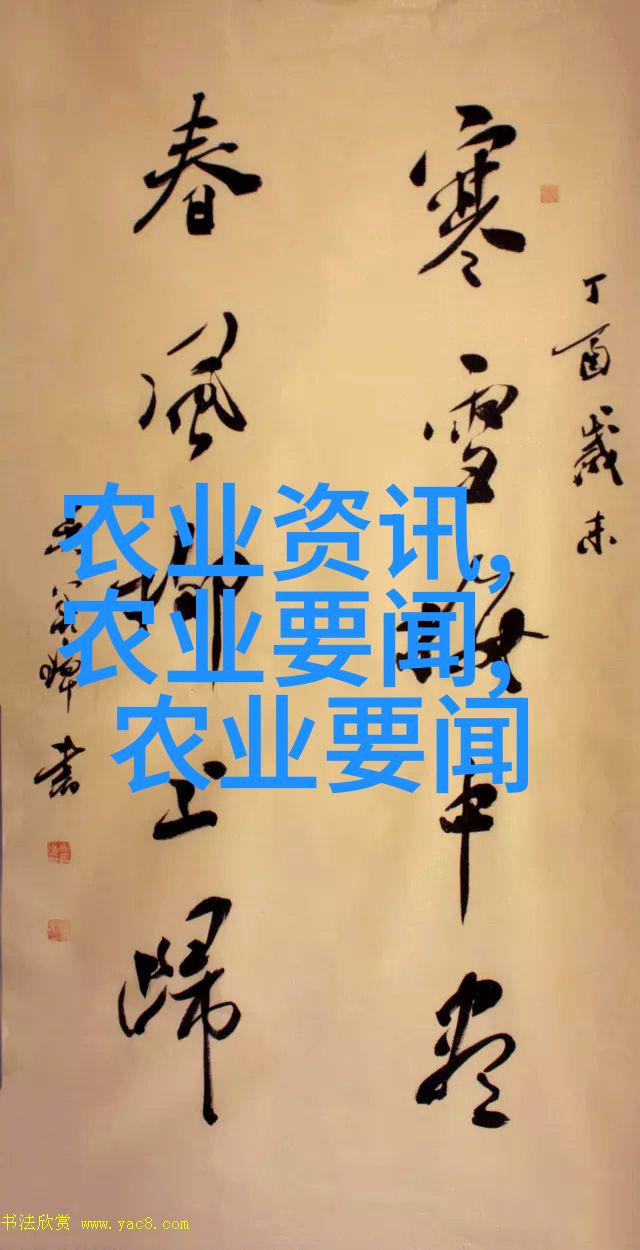 丁酉岁末
寒雪梅中尽
春风柳上归
书
农业资讯,
农业要闻,
农业要闻
书法欣赏 www.yac8.com